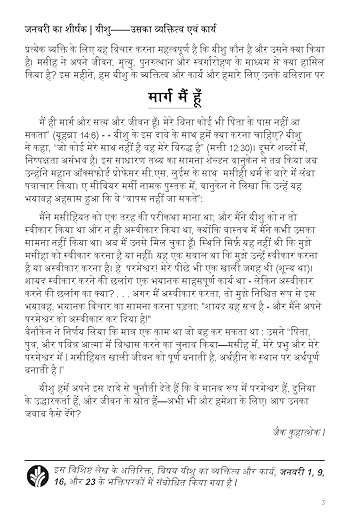 जनवरी का शीर्षक | यीशु——उसका व्यक्तित्व एवं कार्य
प्रत्येक व्यक्ति के लिए यह विचार करना महत्वपूर्ण है कि यीशु कौन है और उसने क्या किया
है। मसीह ने अपने जीवन, मृत्यु, पुनरुत्थान और स्वर्गारोहण के माध्यम से क्या हासिल
किया है? इस महीने, हम यीशु के व्यक्तित्व और कार्य और हमारे लिए उनके बलिदान पर
मार्ग मैं हूँ
मैं ही मार्ग और सत्य और जीवन हूँ। मेरे बिना कोई भी पिता के पास नहीं आ
सकता” (यूहन्ना 14:6) - - यीशु के इस दावे के साथ हमें क्या करना चाहिए? यीशु
ने कहा, “जो कोई मेरे साथ नहीं है वह मेरे विरुद्ध है” (मत्ती 12:30)। दूसरे शब्दों में,
निष्पक्षता असंभव है। इस साधारण तथ्य का सामना शेल्डन वानुकेन ने तब किया जब
उन्होंने महान ऑक्सफोर्ड प्रोफेसर सी.एस. लुईस के साथ मसीही धर्म के बारे में लंबा
पत्राचार किया। ए सीवियर मर्सी नामक पुस्तक में, वानुकेन ने लिखा कि उन्हें यह
भयावह अहसास हुआ कि वे “वापस नहीं जा सकते”:
मैंने मसीहियत को एक तरह की परीकथा माना था; और मैंने यीशु को न तो
स्वीकार किया था और न ही अस्वीकार किया था, क्योंकि वास्तव में मैंने कभी उसका
सामना नहीं किया था। अब मैं उनसे मिल चुका हूँ। स्थिति सिर्फ़ यह नहीं थी कि मुझे
मसीहा को स्वीकार करना है या नहीं। यह एक सवाल था कि मुझे उन्हें स्वीकार करना
है या अस्वीकार करना है। हे परमेश्वर! मेरे पीछे भी एक खाली जगह थी (शून्य था)।
शायद स्वीकार करने की छलांग एक भयानक साहसपूर्ण कार्य था - लेकिन अस्वीकार
करने की छलांग का क्या? . . . अगर मैं अस्वीकार करता, तो मुझे निश्चित रूप से इस
भयावह, भयानक विचार का सामना करना पड़ता: “शायद यह सच है - और मैंने अपने
परमेश्वर को अस्वीकार कर दिया है!”
वैनौकेन ने निर्णय लिया कि मात्र एक काम था जो वह कर सकता था : उसने “पिता,
पुत्र, और पवित्र आत्मा में विश्वास करने का चुनाव किया—मसीह में, मेरे प्रभु और मेरे
परमेश्वर में । मसीहियत खाली जीवन को पूर्ण बनाती है, अर्थहीन के स्थान पर अर्थपूर्ण
बनाती है ।”
यीशु हमें अपने इस दावे से चुनौती देते हैं कि वे मानव रूप में परमेश्वर हैं, दुनिया
के उद्धारकर्ता हैं, और जीवन के स्रोत हैं—अभी भी और हमेशा के लिए। आप उनका
जवाब कैसे देंगे?
जैक कुहात्शेक ।
इस विशिष्ट लेख के अतिरिक्त, विषय यीशु का व्यक्तित्व और कार्य, जनवरी 1, 9,
16, और 23 के भक्तिपरकों में संबोधित किया गया है ।
5